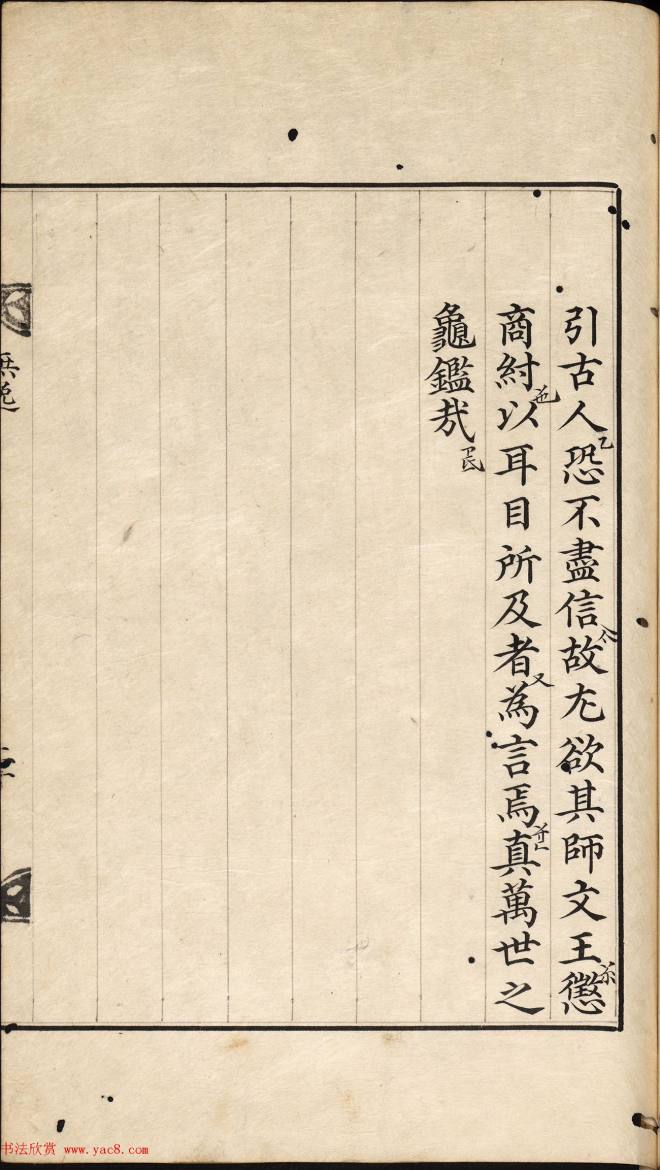 引古人恐不盡信故尤欲其師文王懲
商紂以耳目所及者為言焉真萬世之
龜鑑哉
無逸
书法欣赏 www.yac8.com